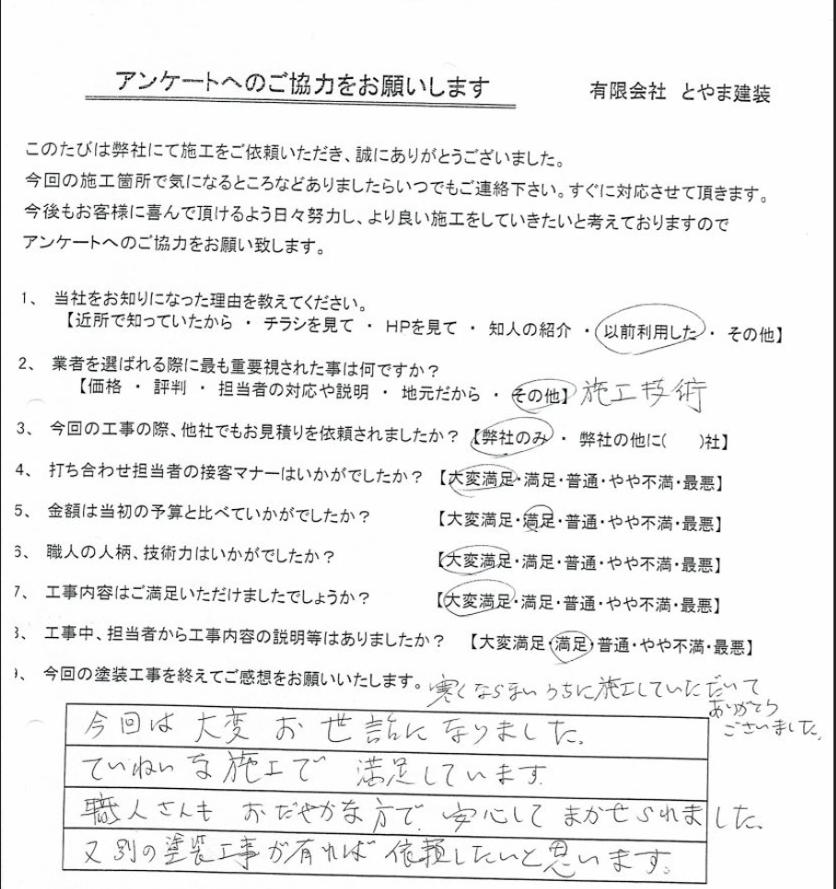 アンケートへのご協力をお願いします
有限会社 とやま建装
このたびは弊社にて施工をご依頼いただき、誠にありがとうございました。
今回の施工箇所で気になるところなどありましたらいつでもご連絡下さい。すぐに対応させて頂きます。
今後もお客様に喜んで頂けるよう日々努力し、より良い施工をしていきたいと考えておりますので
アンケートへのご協力をお願い致します。
1、 当社をお知りになった理由を教えてください。
【近所で知っていたから ・ チラシを見て ・ HPを見て ・ 知人の紹介 ・ 以前利用した ・ その他】
2、 業者を選ばれる際に最も重要視された事は何ですか？
【価格 ・ 評判 ・ 担当者の対応や説明 ・ 地元だから ・ その他】 施工技術
3、 今回の工事の際、他社でもお見積りを依頼されましたか？ 【弊社のみ ・ 弊社の他に( )社】
4、 打ち合わせ担当者の接客マナーはいかがでしたか？ 【大変満足・満足・普通・やや不満・最悪】
5、 金額は当初の予算と比べていかがでしたか？ 【大変満足・満足・普通・やや不満・最悪】
6、 職人の人柄、技術力はいかがでしたか？ 【大変満足・満足・普通・やや不満・最悪】
7、 工事内容はご満足いただけましたでしょうか？ 【大変満足・満足・普通・やや不満・最悪】
8、 工事中、担当者から工事内容の説明等はありましたか？ 【大変満足・満足・普通・やや不満・最悪】
9、 今回の塗装工事を終えてご感想をお願いいたします。
寒くならないうちに施工していただいて
ありがとう
ございました。
今回は大変お世話になりました。
ていねいな施工で 満足しています
職人さんも おだやかな方で 安心して まかせられました。
又別の塗装工事が有れば 依頼したいと思います。